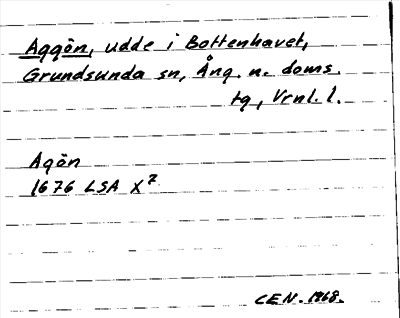 Aggön, udde i Bottenhavet,
Grundsunda sn, Ång. n. doms.
tg, Vrnl. l.
Agön
1676 LSA X²
CEN. 1968.